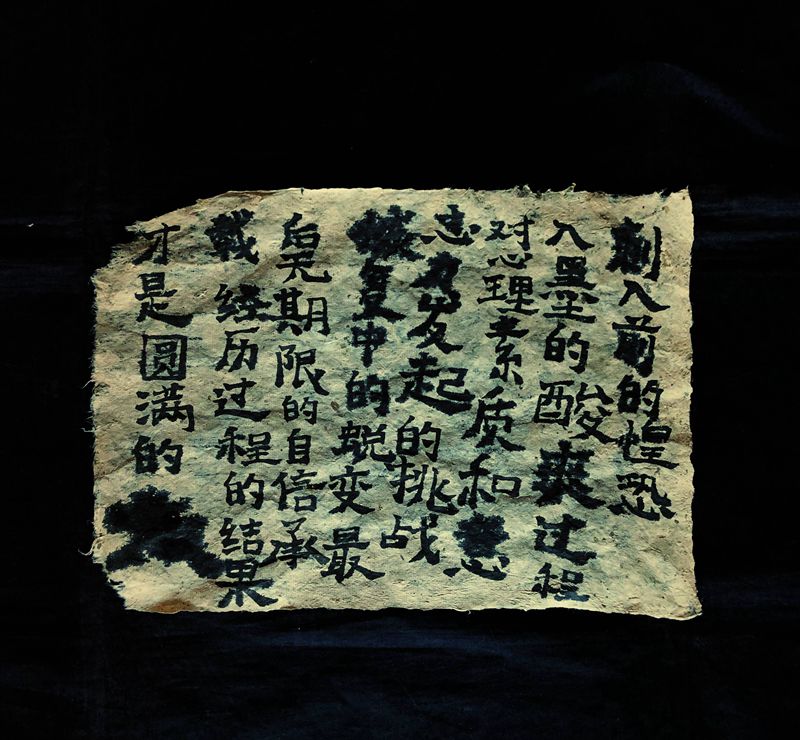 刺入前的惶恐
入墨尘的酸爽过程
对心理素质和意
志力发起的挑战
恢复中的蜕变最
后无期限的自信承
载经历过程的结果
才是圆满的